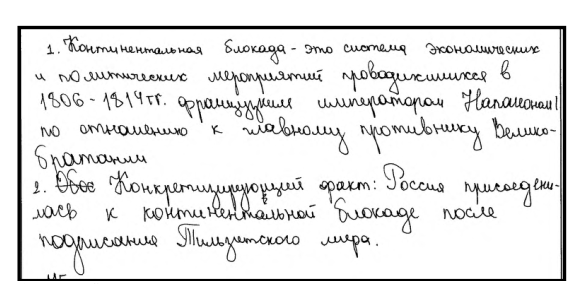 1. Континентальная блокада - это система экономических
и политических мероприятий проводившихся в
1806-1814 гг. французским императором Наполеоном I
по отношению к главному противнику Велико-
британии
2. Конкретизирующий факт: Россия присоедени-
лась к континентальной блокаде после
подписания Тильзитского мира.